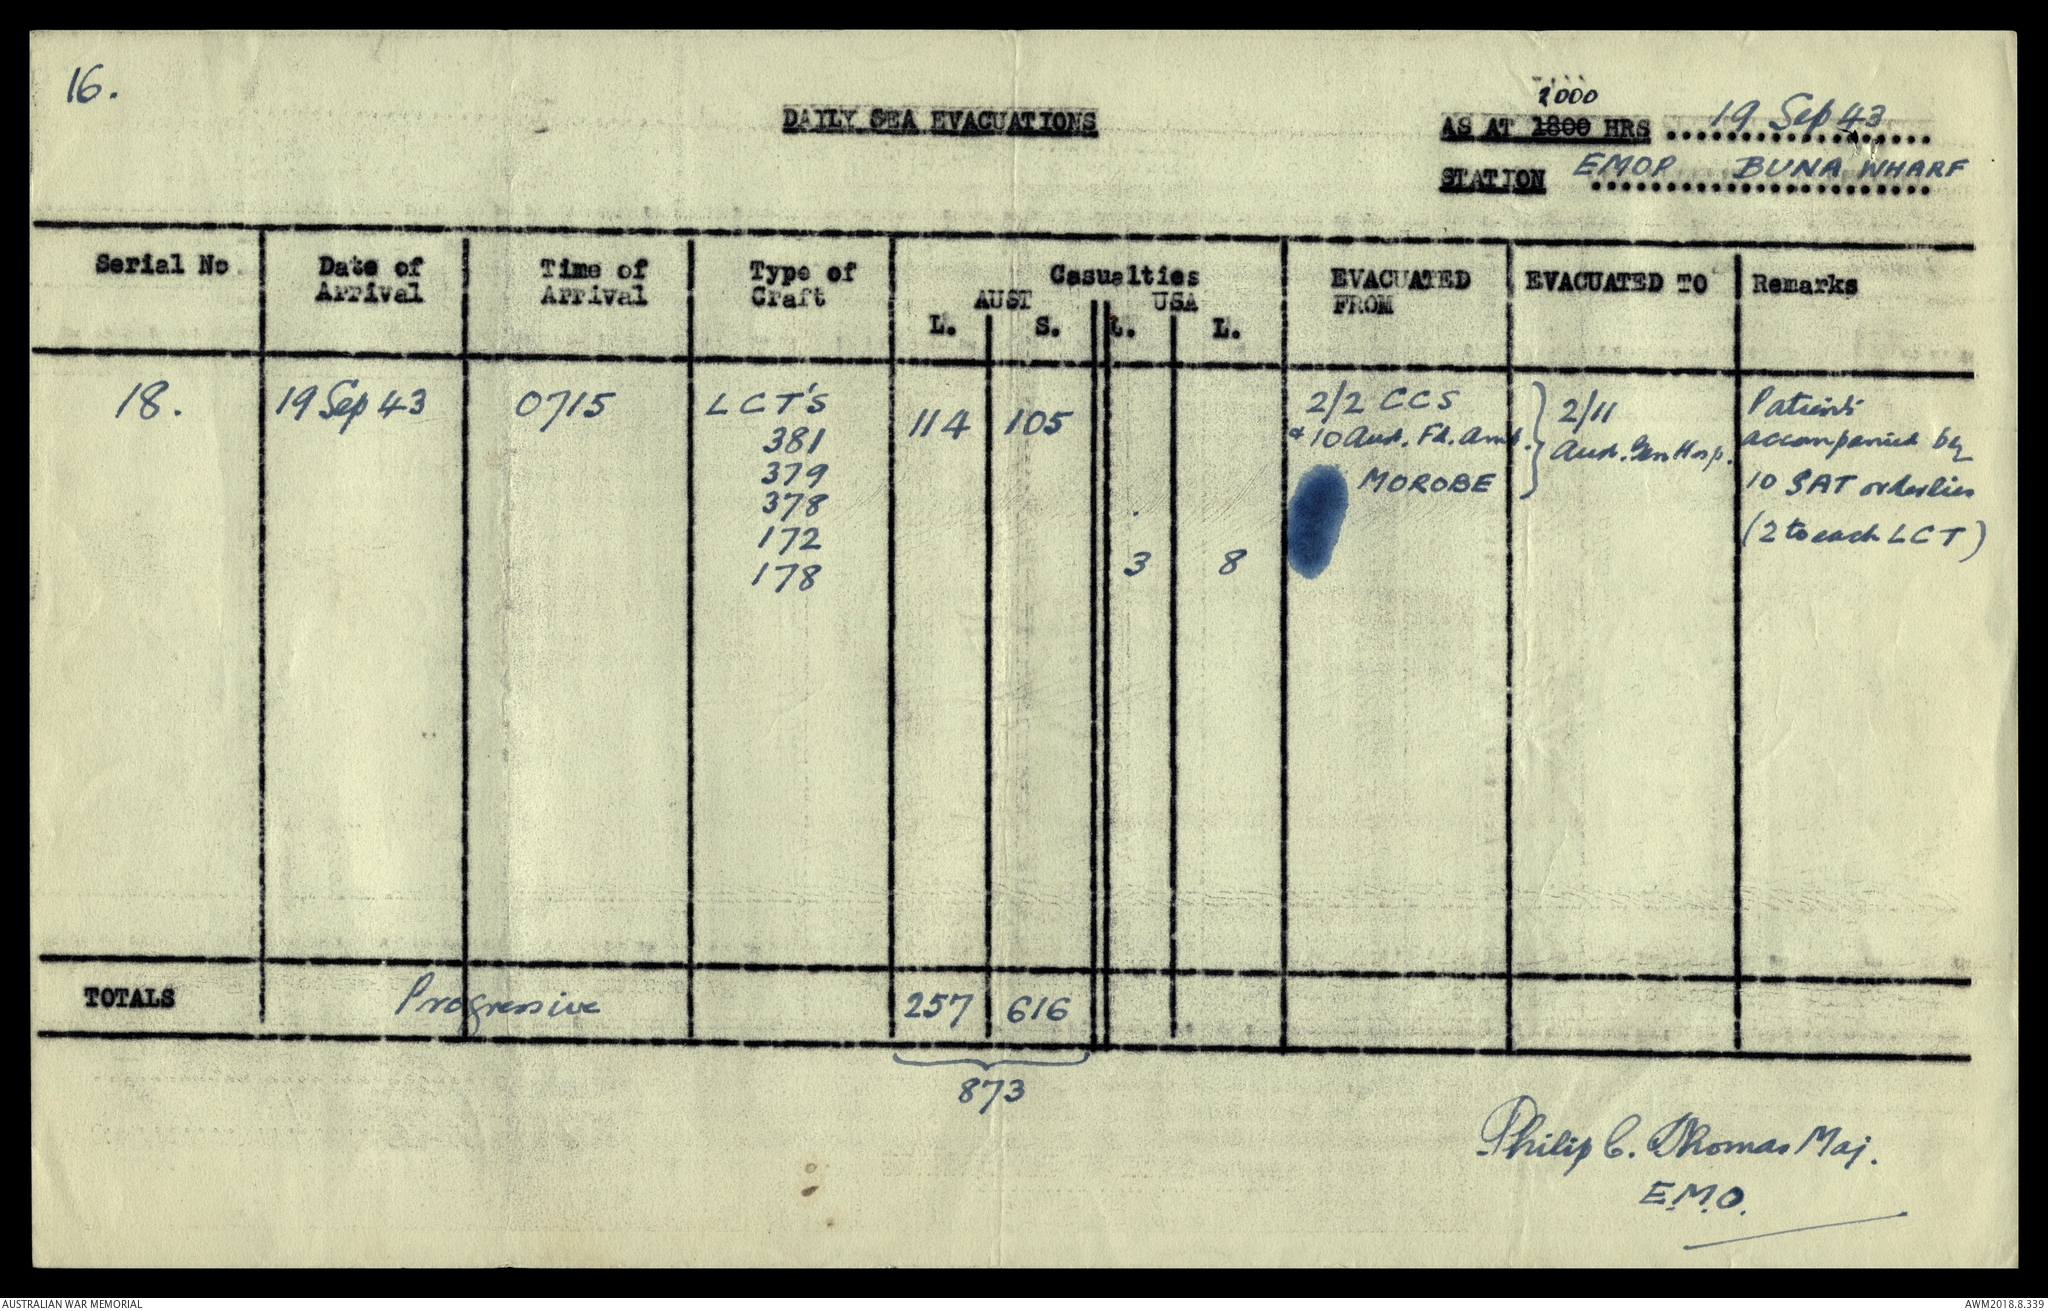 16.
DAILY SEA EVACUATIONS
2000
AS AT 1800 HRS 19 Sep 43
STATION EMOP BUNA WHARF
Serial No Date of Arrival Time of Arrival Type of Craft Casualties EVACUATED FROM EVACUATED TO Remarks
AUST USA
L. S. L. L.
18. 19 Sep 43 0715 LCT'S 114 105 2/2 CCS 2/11 Patients
381 & 10 Aust. Fd. Amb. Aust. Gen Hosp. accompanied by
379 MOROBE 10 SAT orderlies
378
172 (2 to each LCT)
178 3 8
TOTALS Progressive 257 616
873
Philip C. Thomas Maj.
E.M.O.
AUSTRALIAN WAR MEMORIAL AWM2018.8.339